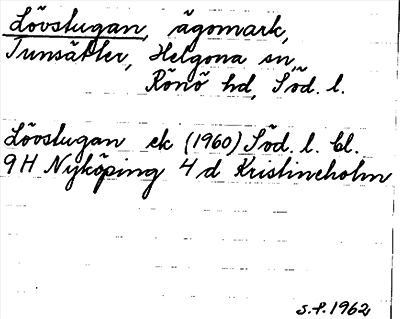 Lövstugan, ägomark,
Tunsätter, Helgona sn,
Rönö hd, Söd. l.
Lövstugan ek (1960) Söd. l. bl.
9H Nyköping 4 d Kristineholm
S.f. 1962